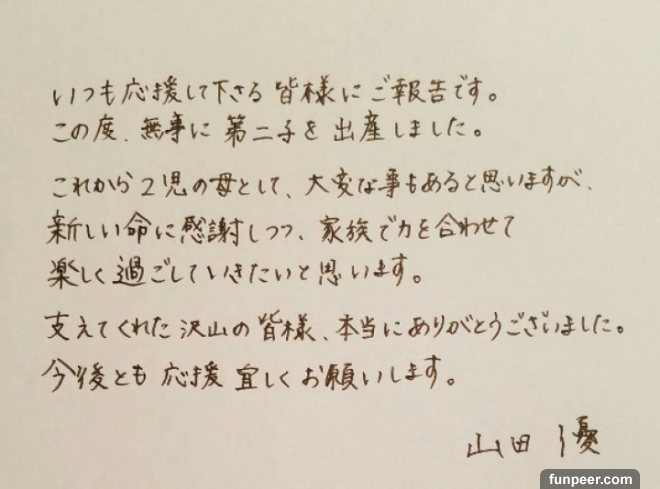 いつも応援して下さる皆様にご報告です。
この度、無事に第二子を出産しました。
これから2児の母として、大変な事もあると思いますが、
新しい命に感謝しつつ、家族で力を合わせて
楽しく過ごしていきたいと思います。
支えてくれた沢山の皆様、本当にありがとうございました。
今後とも応援宜しくお願いします。
山田優
funpeer.com